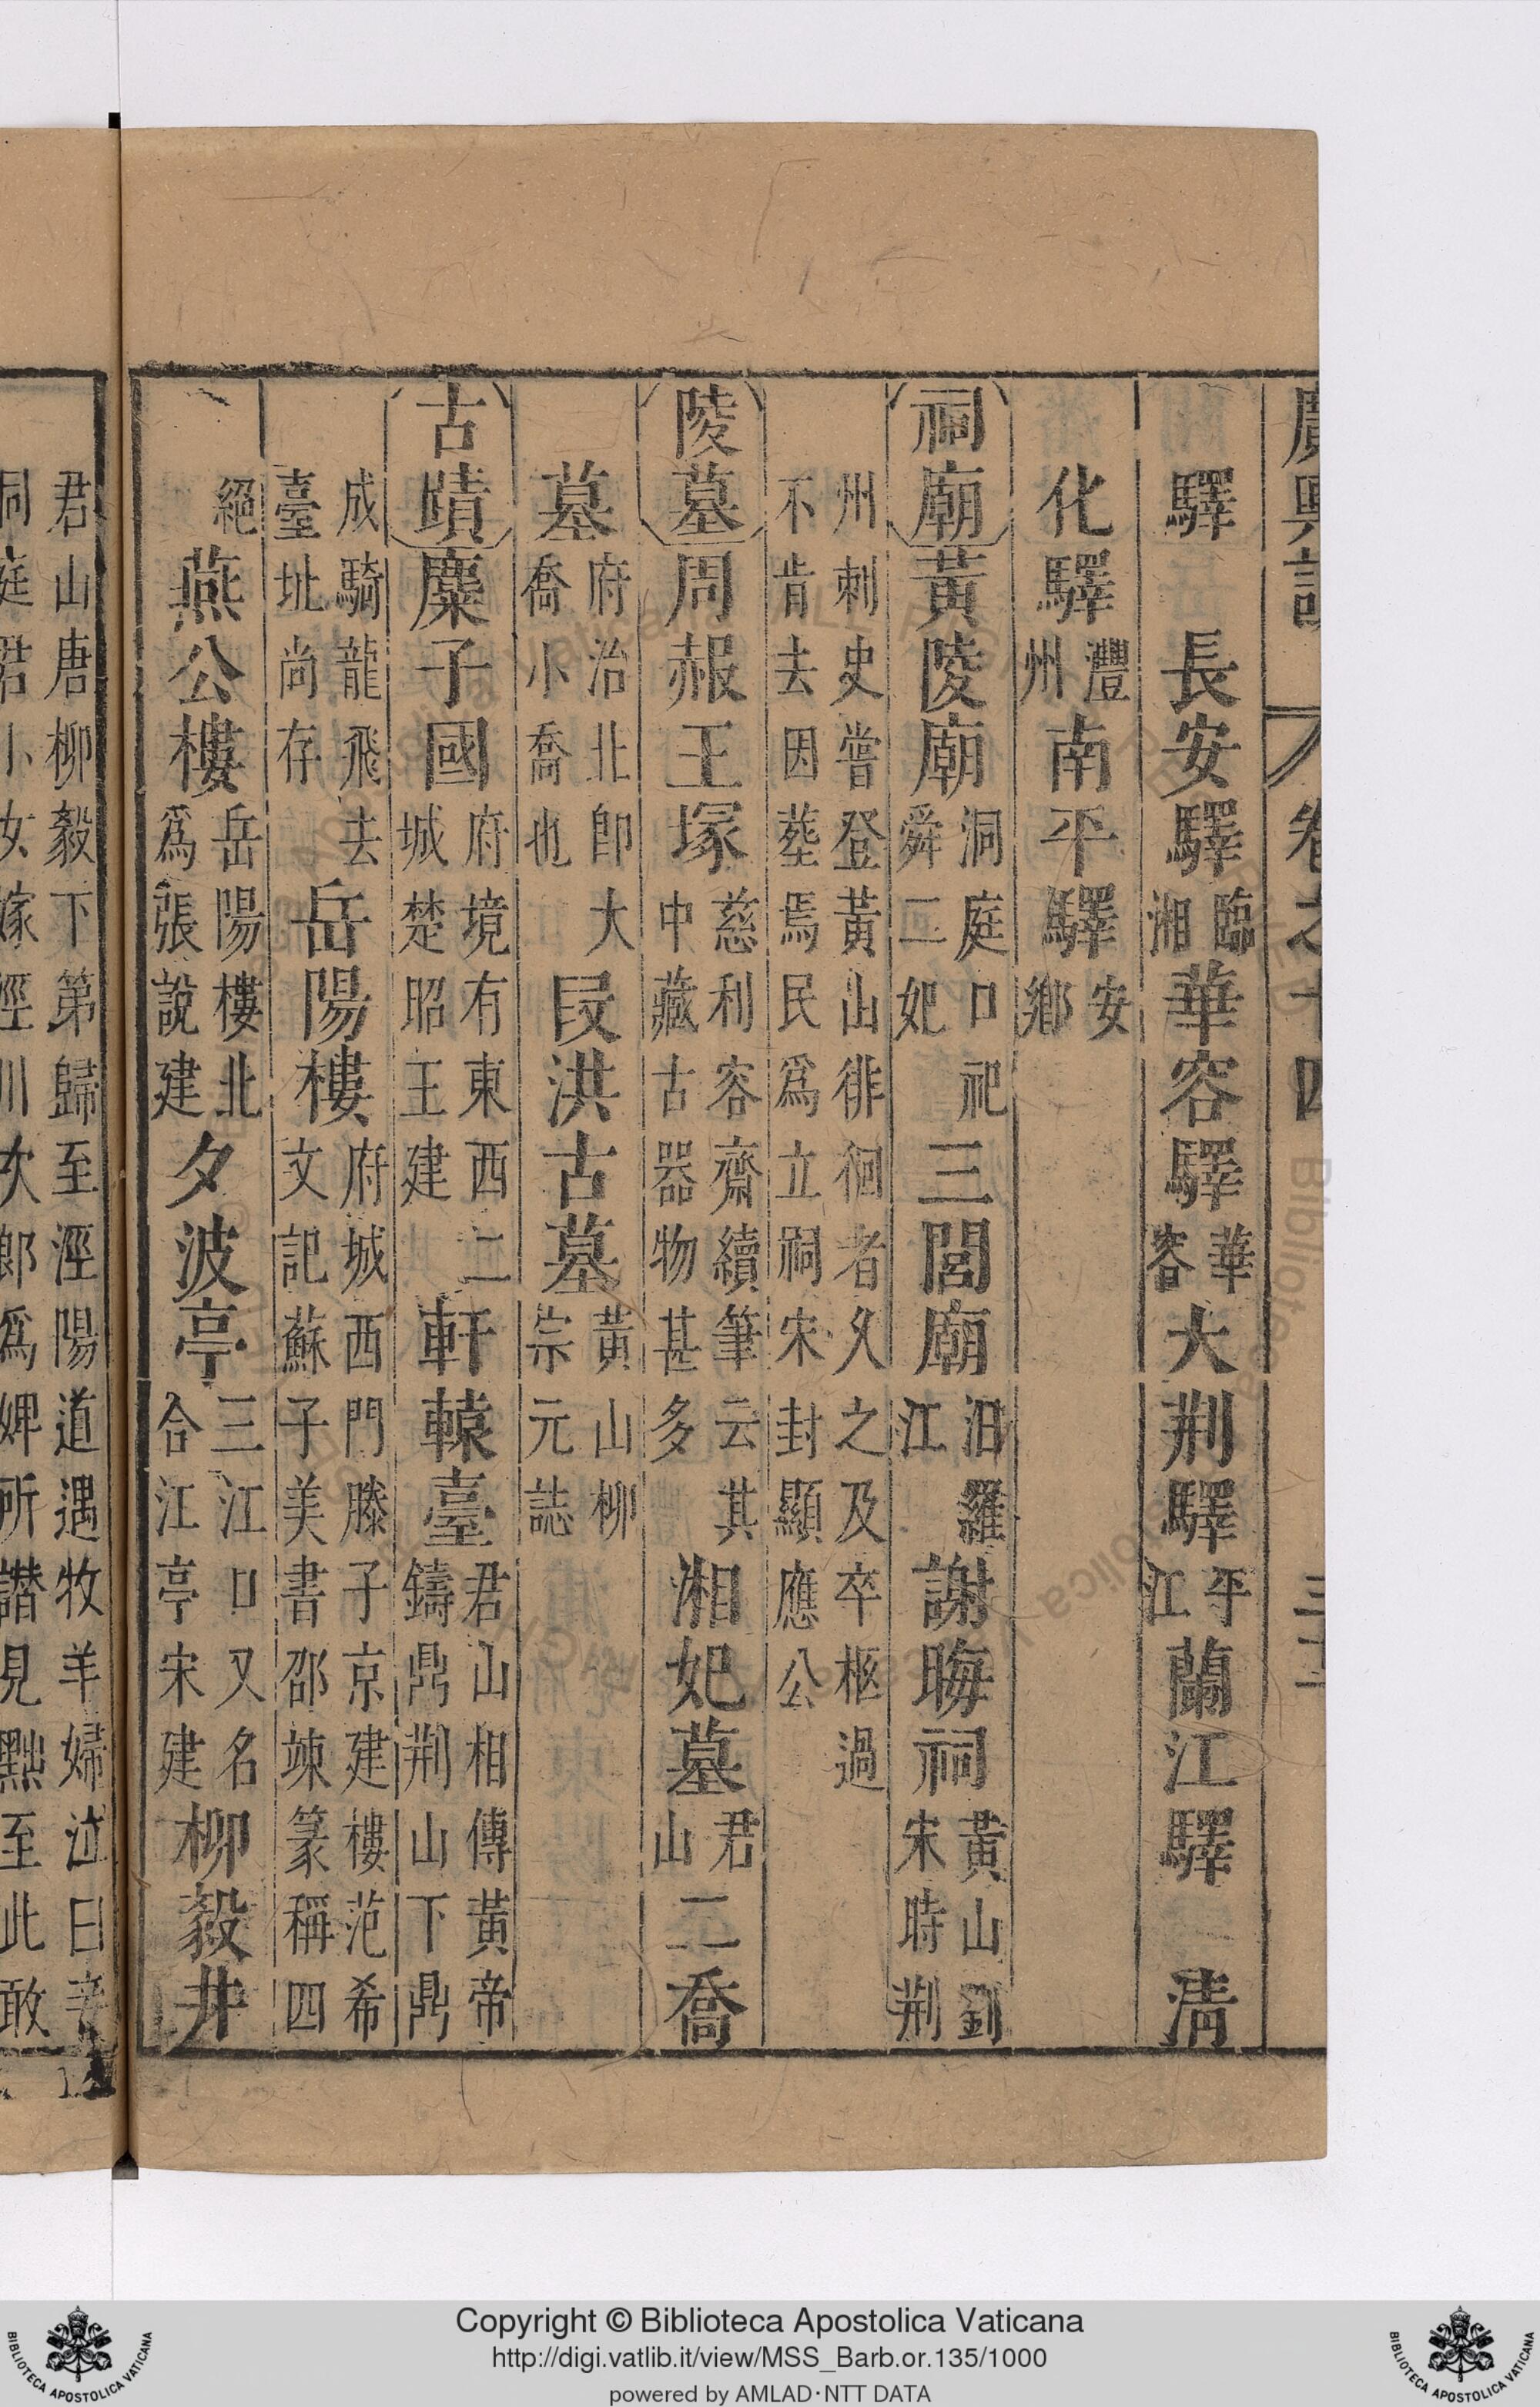 廣輿記 卷之十四
驛 長安驛 臨湘 華容驛 華容 大荆驛 平江 蘭江驛 清
化驛 灃州 南平驛 安鄉
祠廟 黃陵廟 洞庭口祀舜二妃 三閭廟 汨羅江 謝晦祠 黃山劉宋時荆
州刺史嘗登黃山徘徊者久之及卒柩過不肯去因葬焉民爲立祠宋封顯應公
陵墓 周赧王塚 慈利容齋續筆云其中藏古器物甚多 湘妃墓 君山 二喬
墓 府治北卽大喬小喬也 民洪古墓 黃山柳宗元誌
古蹟 麋子國 府境有東西二城楚昭王建 軒轅臺 君山相傳黃帝鑄鼎荆山下鼎
成騎龍飛去臺址尚存 岳陽樓 府城西門滕子京建樓范希文記蘇子美書邵竦篆稱四
絕 燕公樓 岳陽樓北爲張說建 夕波亭 三江口又名合江亭宋建 柳毅井
君山唐柳毅下第歸至涇陽道遇牧羊婦泣曰妾
洞庭君小女嫁涇川次郎爲婢所譖見黜至此敢
Copyright © Biblioteca Apostolica Vaticana
http://digi.vatlib.it/view/MSS_Barb.or.135/1000
powered by AMLAD·NTT DATA
BIBLIOTECA APOSTOLICA VATICANA
BIBLIOTECA APOSTOLICA VATICANA